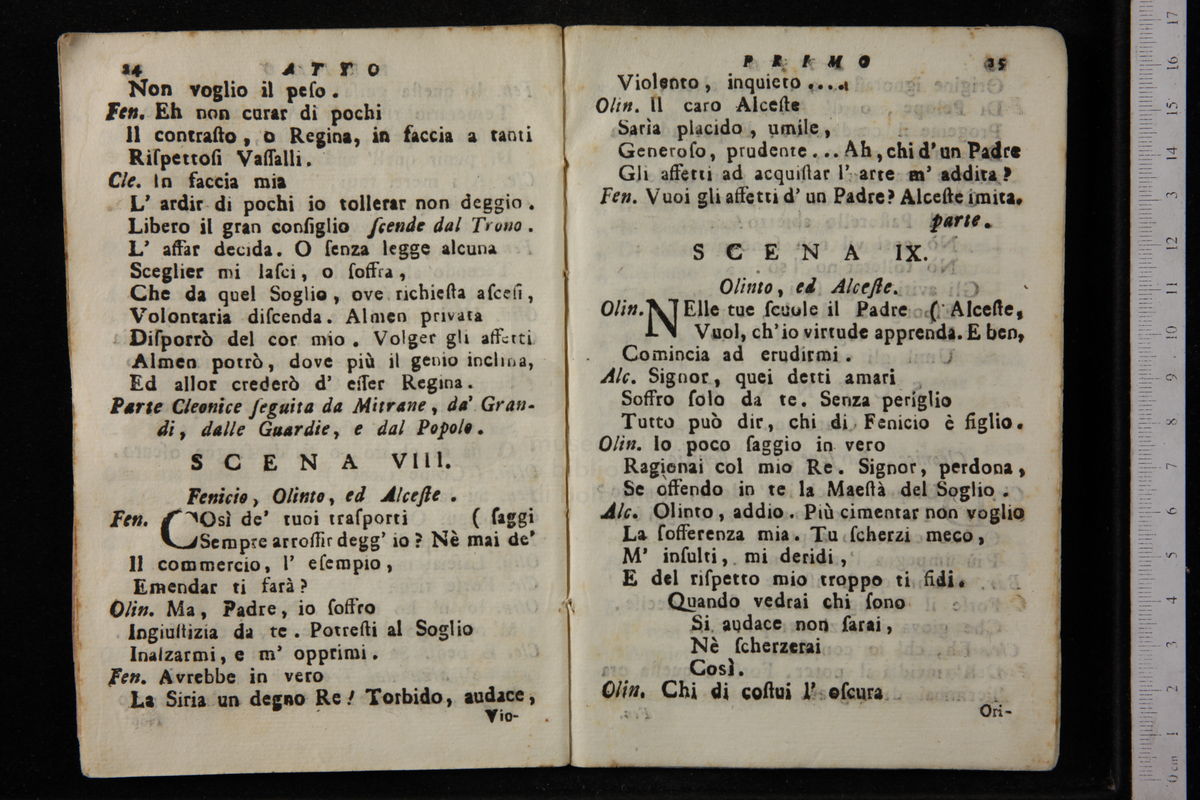 24 ATTO
Non voglio il peſo.
Fen. Eh non curar di pochi
Il contraſto, o Regina, in faccia a tanti
Riſpettoſi Vaſſalli.
Cle. In faccia mia
L' ardir di pochi io tollerar non deggio.
Libero il gran conſiglio ſcende dal Trono.
L' affar decida. O ſenza legge alcuna
Sceglier mi laſci, o ſoffra,
Che da quel Soglio, ove richieſta aſceſi,
Volontaria diſcenda. Almen privata
Diſporrò del cor mio. Volger gli affetti
Almen potrò, dove più il genio inclina,
Ed allor crederò d' eſſer Regina.
Parte Cleonice ſeguita da Mitrane, da' Gran-
di, dalle Guardie, e dal Popolo.
SCENA VIII.
Fenicio, Olinto, ed Alceſte.
Fen. COsì de' tuoi traſporti ( ſaggi
Sempre arroſſir degg' io? Nè mai de'
Il commercio, l' eſempio,
Emendar ti farà?
Olin. Ma, Padre, io ſoffro
Ingiuſtizia da te. Potreſti al Soglio
Inalzarmi, e m' opprimi.
Fen. Avrebbe in vero
La Siria un degno Re! Torbido, audace,
Vio-
PRIMO 25
Violento, inquieto....
Olin. Il caro Alceſte
Sarìa placido, umile,
Generoſo, prudente... Ah, chi d' un Padre
Gli affetti ad acquiſtar l' arte m' addita?
Fen. Vuoi gli affetti d' un Padre? Alceſte imita.
parte.
SCENA IX.
Olinto, ed Alceſte.
Olin. NElle tue ſcuole il Padre ( Alceſte,
Vuol, ch' io virtude apprenda. E ben,
Comincia ad erudirmi.
Alc. Signor, quei detti amari
Soffro ſolo da te. Senza periglio
Tutto può dir, chi di Fenicio è figlio.
Olin. Io poco ſaggio in vero
Ragionai col mio Re. Signor, perdona,
Se offendo in te la Maeſtà del Soglio.
Alc. Olinto, addio. Più cimentar non voglio
La ſofferenza mia. Tu ſcherzi meco,
M' inſulti, mi deridi,
E del riſpetto mio troppo ti fidi.
Quando vedrai chi ſono
Sì audace non ſarai,
Nè ſcherzerai
Così.
Olin. Chi di coſtui l' oſcura
Ori-